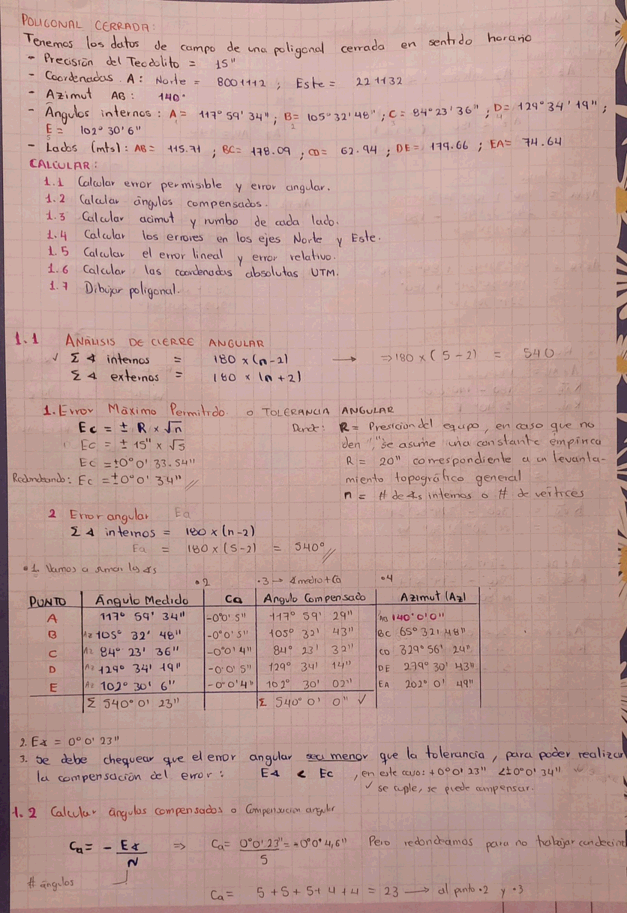 POLIGONAL CERRADA:
Tenemos los datos de campo de una poligonal cerrada en sentido horario
- Precisión del Teodolito = 15"
- Coordenadas A: Norte = 8001112 ; Este = 221132
- Azimut AB: 140°
- Ángulos internos: A = 117° 59' 34" ; B = 105° 32' 48" ; C = 84° 23' 36" ; D = 129° 34' 19" ;
E = 102° 30' 6"
- Lados (mts): AB = 115.71 ; BC = 178.09 , CD = 62.94 ; DE = 179.66 ; EA = 74.64
CALCULAR:
1.1 Calcular error permisible y error angular.
1.2 Calcular ángulos compensados.
1.3 Calcular acimut y rumbo de cada lado.
1.4 Calcular los errores en los ejes Norte y Este.
1.5 Calcular el error lineal y error relativo.
1.6 Calcular las coordenadas absolutas UTM.
1.7 Dibujar poligonal.
1.1 ANÁLISIS DE CIERRE ANGULAR
√ Σ ∢ internos = 180 x (n-2) → ⇒ 180 x (5-2) = 540
Σ ∢ externos = 180 x (n+2)
1. Error Máximo Permitido o TOLERANCIA ANGULAR
Ec = ± R x √n Donde: R = Presicion del equipo, en caso que no
Ec = ± 15" x √5 den "," se asume una constante empírica
Ec = ±0°0' 33.54" R = 20" correspondiente a un levanta-
Redondeando: Ec = ±0°0' 34" miento topográfico general
n = # de ∢s internos o # de vértices
2 Error angular Ea
Σ ∢ internos = 180 x (n-2)
Ea = 180 x (5-2) = 540°
•1. Vamos a sumar los ∢s
•2 •3 → ∢ medio + Ca •4
PUNTO Ángulo Medido Ca Angulo Compensado Azimut (Az)
A 117° 59' 34" -0°0' 5" 117° 59' 29" 140°0'0"
B 105° 32' 48" -0°0' 5" 105° 32' 43" BC 65° 32' 48"
C 84° 23' 36" -0°0' 4" 84° 23' 32" CD 329° 56' 24"
D 129° 34' 19" -0°0' 5" 129° 34' 14" DE 279° 30' 43"
E 102° 30' 6" -0°0' 4" 102° 30' 02" EA 202° 0' 49"
Σ 540° 0' 23" Σ 540° 0' 0" ✓
2. E∢ = 0° 0' 23"
3. Se debe chequear que el error angular sea menor que la tolerancia, para poder realizar
la compensación del error: E∢ < Ec , en este caso: +0°0' 23" < ±0°0' 34"
✓ se cuple, se puede compensar.
1.2 Calcular ángulos compensados o Compensación angular
Ca = - E∢ / N ⇒ Ca = 0°0' 23" / 5 = -0°0' 4,6" Pero redondeamos para no trabajar con
# ángulos
Ca = 5 + 5 + 5 + 4 + 4 = 23 → al punto •2 y •3